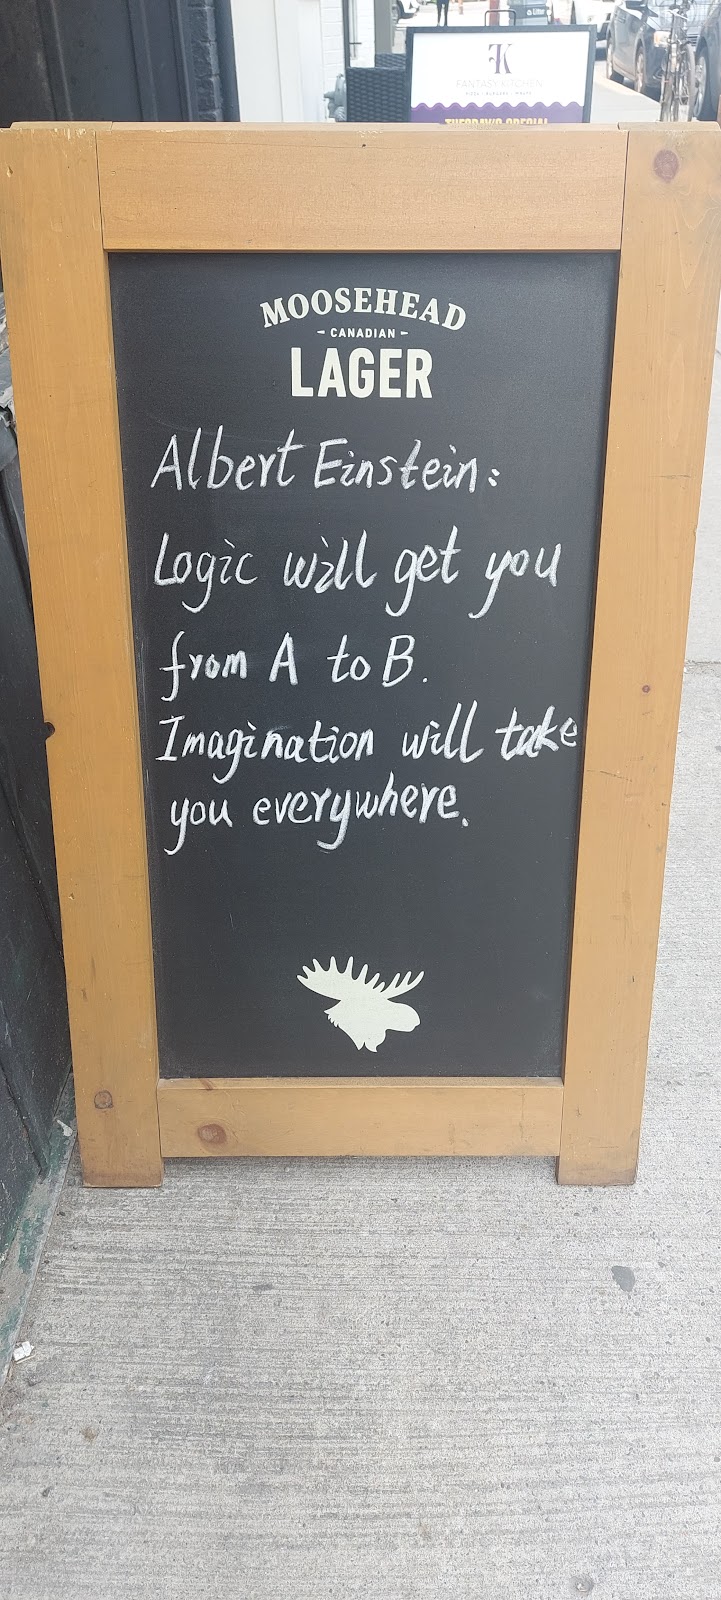 FK
FANTASY KITCHEN
TUESDAY'S SPECIAL
MOOSEHEAD
- CANADIAN -
LAGER
Albert Einstein:
Logic will get you
from A to B.
Imagination will take
you everywhere.